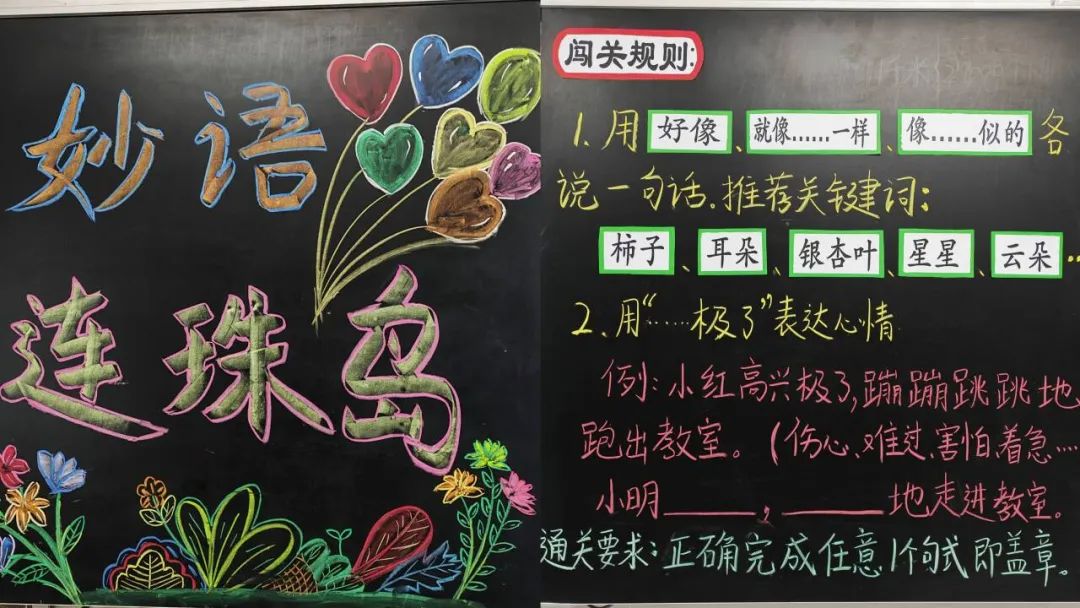 妙语
连珠岛
闯关规则:
1.用好像、就像……一样、像……似的各
说一句话.推荐关键词:
柿子、耳朵、银杏叶、星星、云朵…
2、用“……极了”表达心情
例:小红高兴极了,蹦蹦跳跳地
跑出教室。(伤心、难过、害怕、着急…
小明______,______地走进教室。
通关要求:正确完成任意1个句式即盖章。